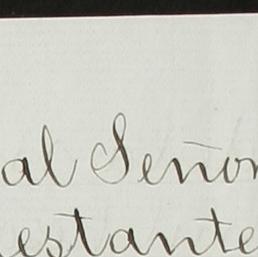 al Señor
estante